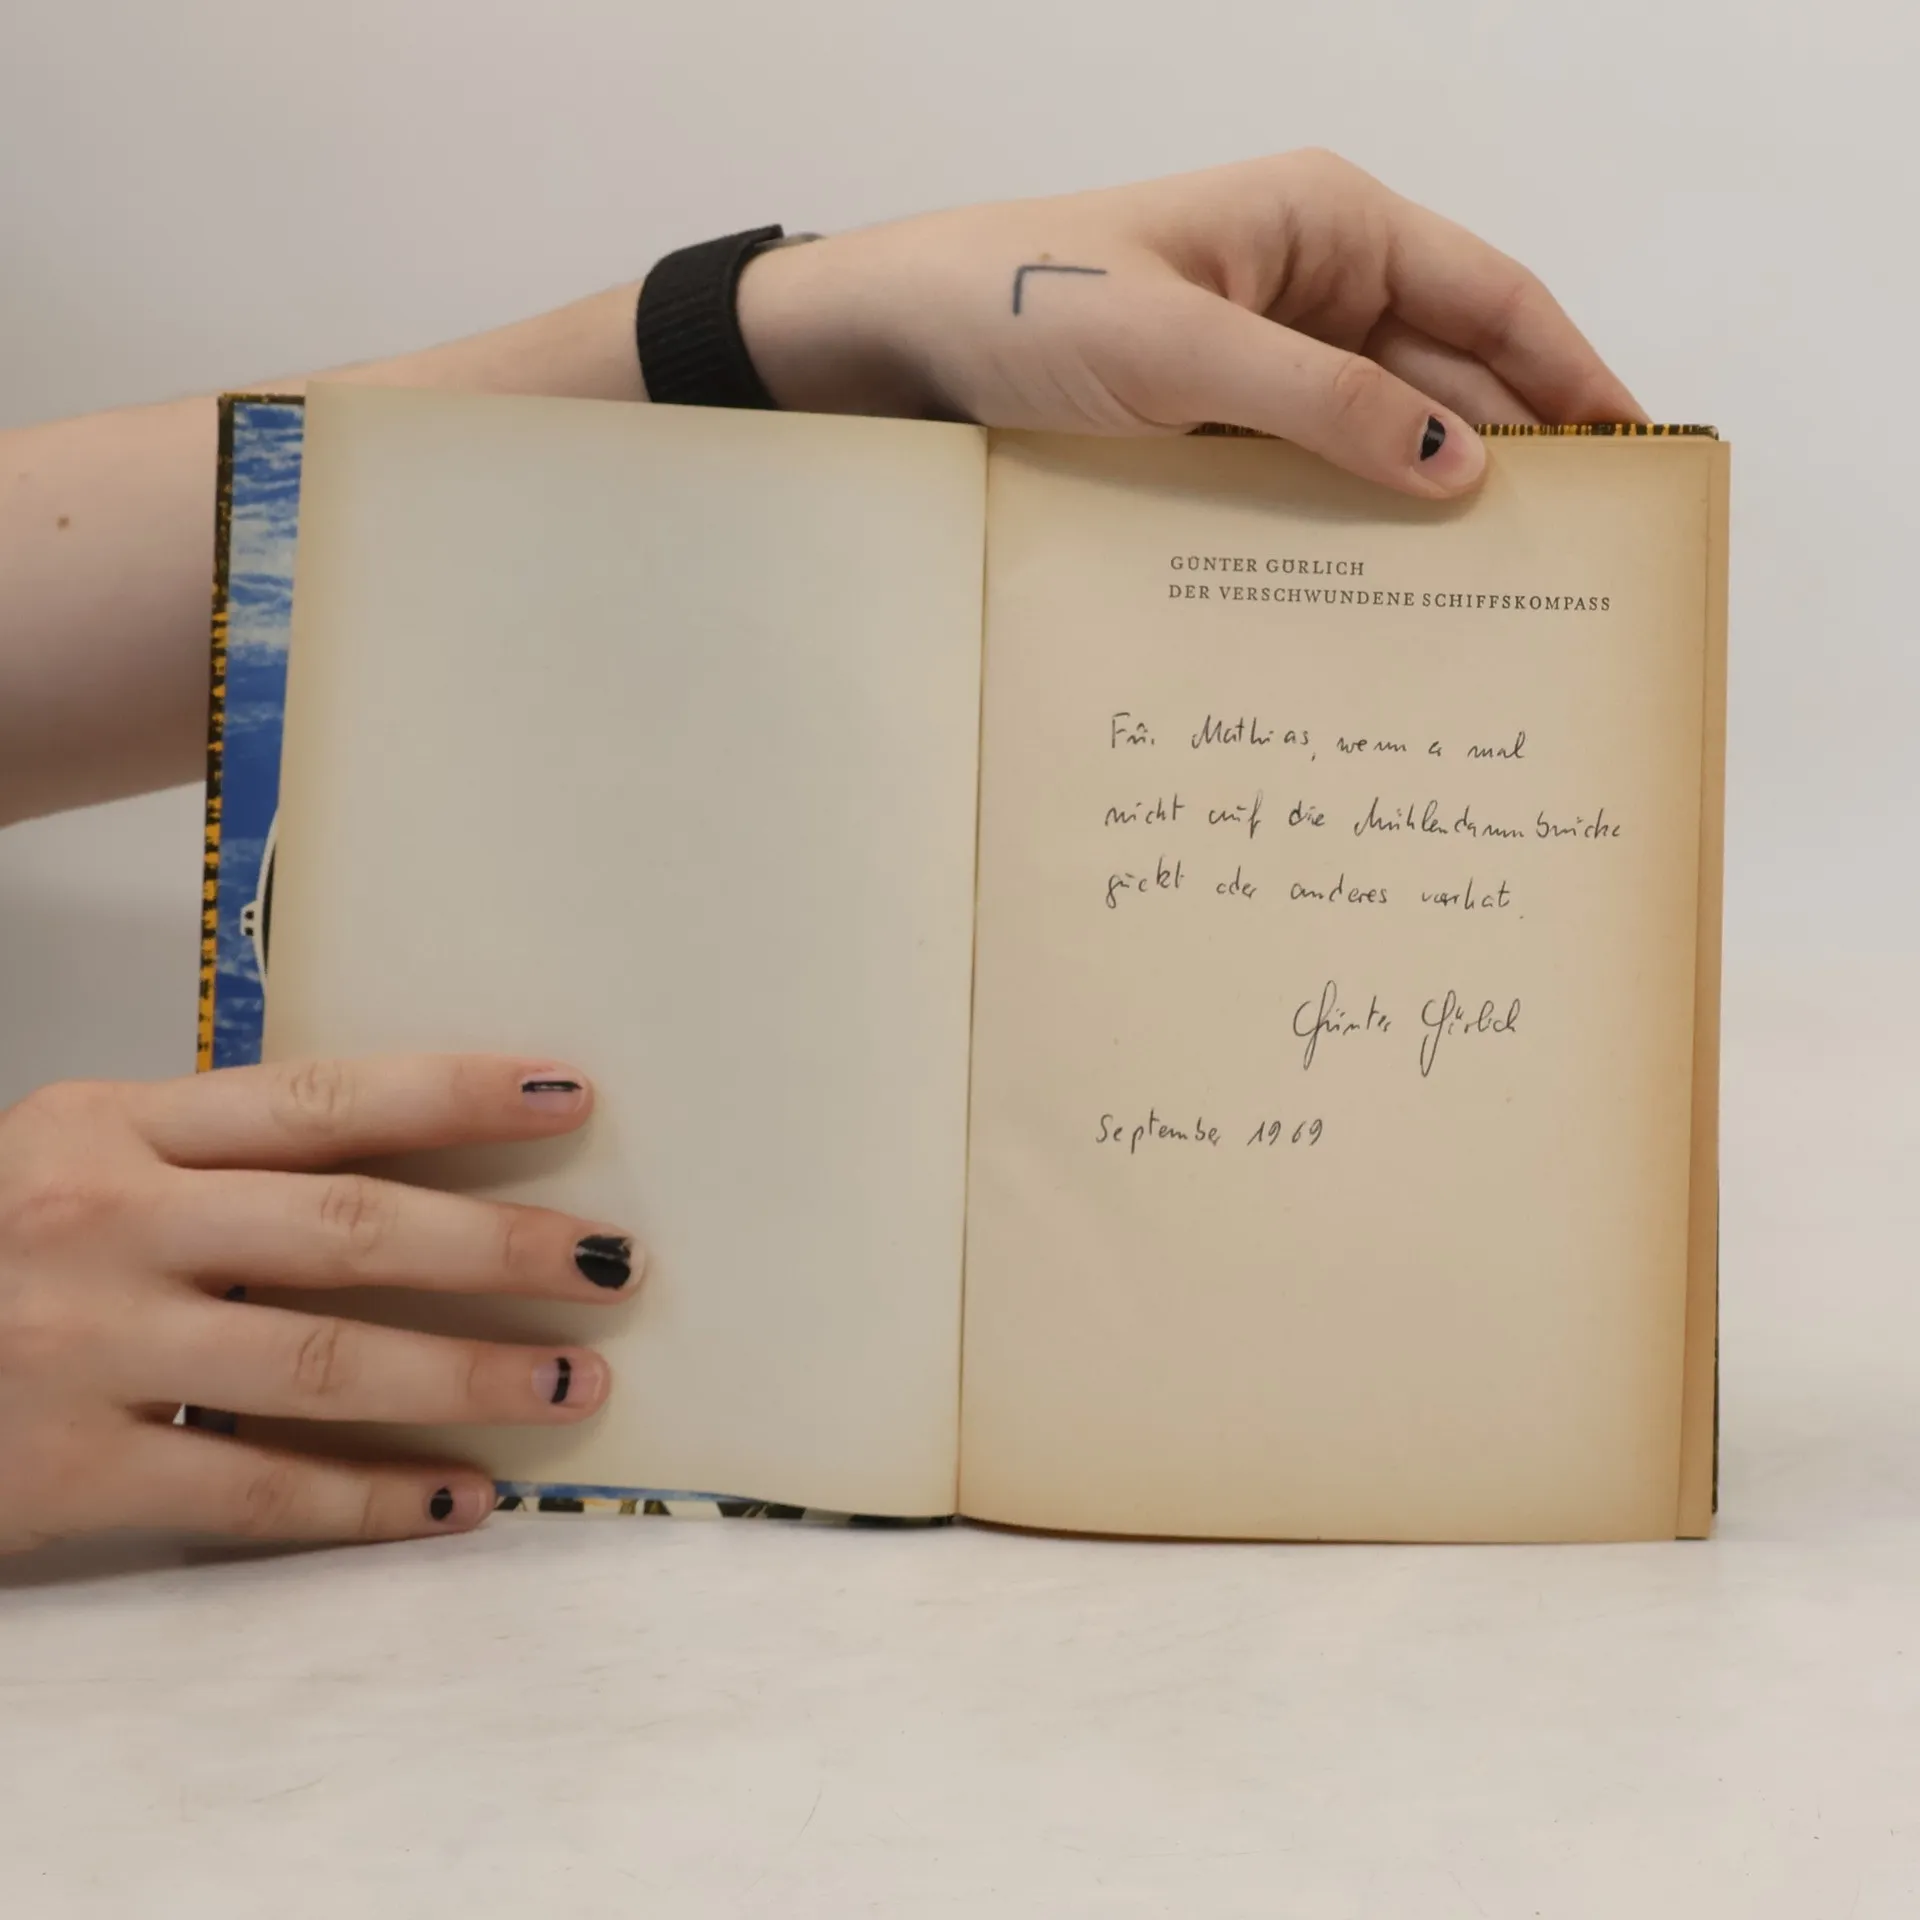 GÜNTER GÖRLICH
DER VERSCHWUNDENE SCHIFFSKOMPASS
Für Mathias, wenn er mal
nicht auf die Mühlendammbrücke
guckt oder anderes vorhat.
Günter Görlich
September 1969